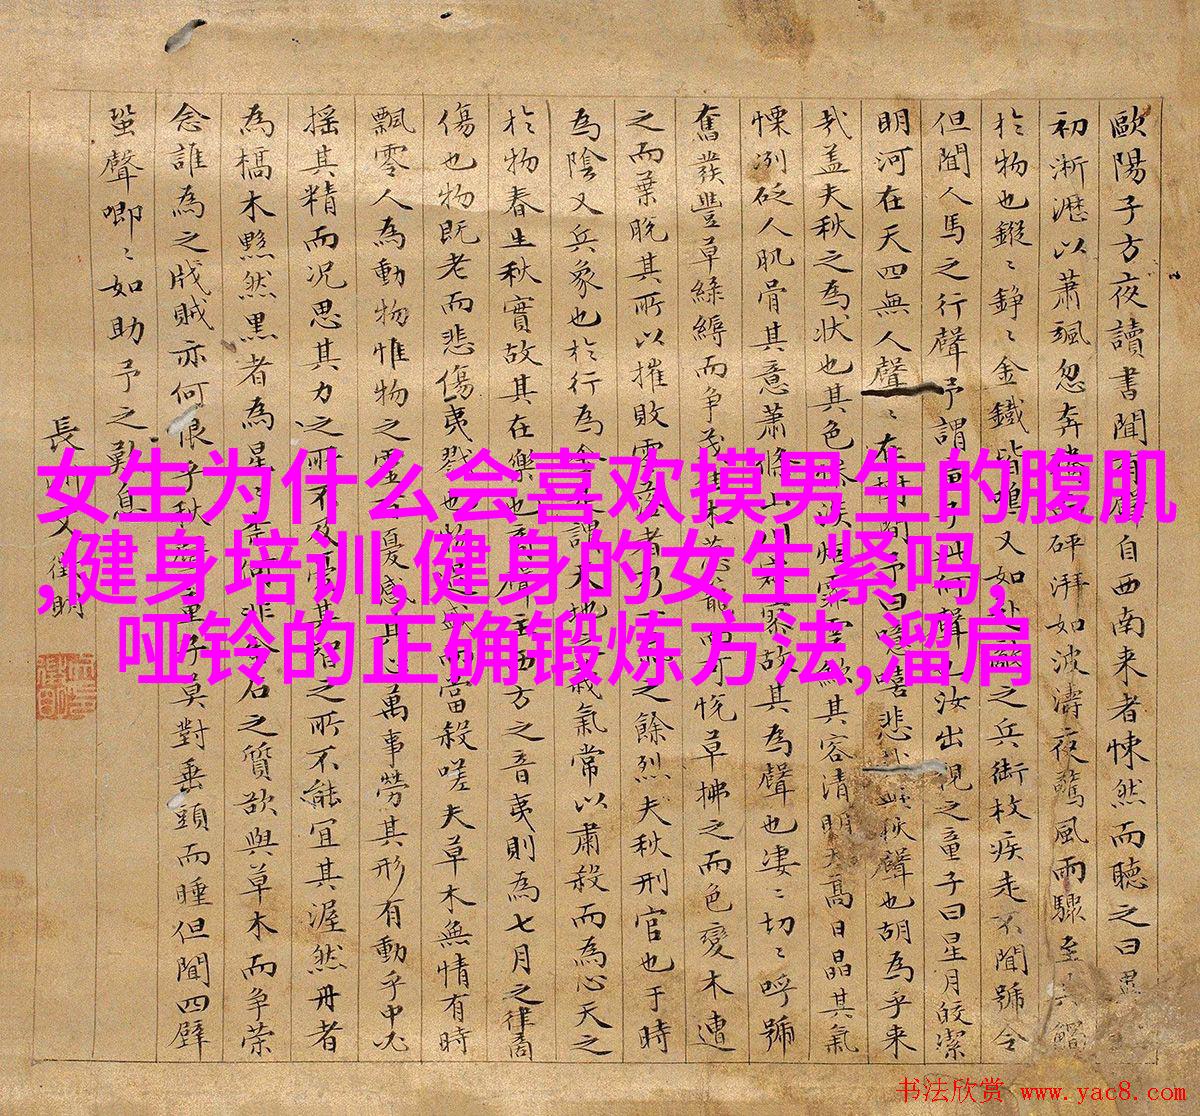 女生为什么会喜欢摸男生的腹肌
,健身培训,健身的女生紧吗,
哑铃的正确锻炼方法,溜肩
歐陽子方夜讀書聞有聲自西南来者悚然而聽之曰異
初淅瀝以蕭颯忽奔而砰湃如波濤夜驚風雨驟至其觸
於物也鏦〻錚〻金鐵皆鳴又如赴敵之兵銜枚疾走不聞號令
但聞人馬之行聲予謂童子此何聲也汝出視之童子曰星月皎潔
明河在天四無人聲〻在樹間予曰噫嘻悲哉此秋聲也胡為乎来
哉盖夫秋之為狀也其色慘淡烟霏雲歛其容清明天高日晶其氣
慄冽砭人肌骨其意蕭條山川寂寥故其為聲也凄〻切〻呼號
奮發豐草綠縟而争茂佳木葱蘢而可悅草拂之而色變木遭
之而葉脫其所以摧敗零落者乃一氣之餘烈夫秋刑官也于時
為陰又兵象也於行為金是謂天地之義氣常以肅殺而為心天之
於物春生秋實故其在樂也商聲主西方之音夷則為七月之律商
傷也物既老而悲傷夷戮也物過盛而當殺嗟夫草木無情有時
飄零人為動物惟物之靈百憂感其心萬事勞其形有動乎中必
搖其精而况思其力之所不及憂其智之所不能宜其渥然丹者
為槁木黟然黒者為星〻奈何非金石之質欲與草木而争荣
念誰為之戕賊亦何恨乎秋聲童子莫對垂頭而睡但聞四壁
蛩聲唧〻如助予之歎息
長洲文徵明
书法欣赏 www.yac8.com